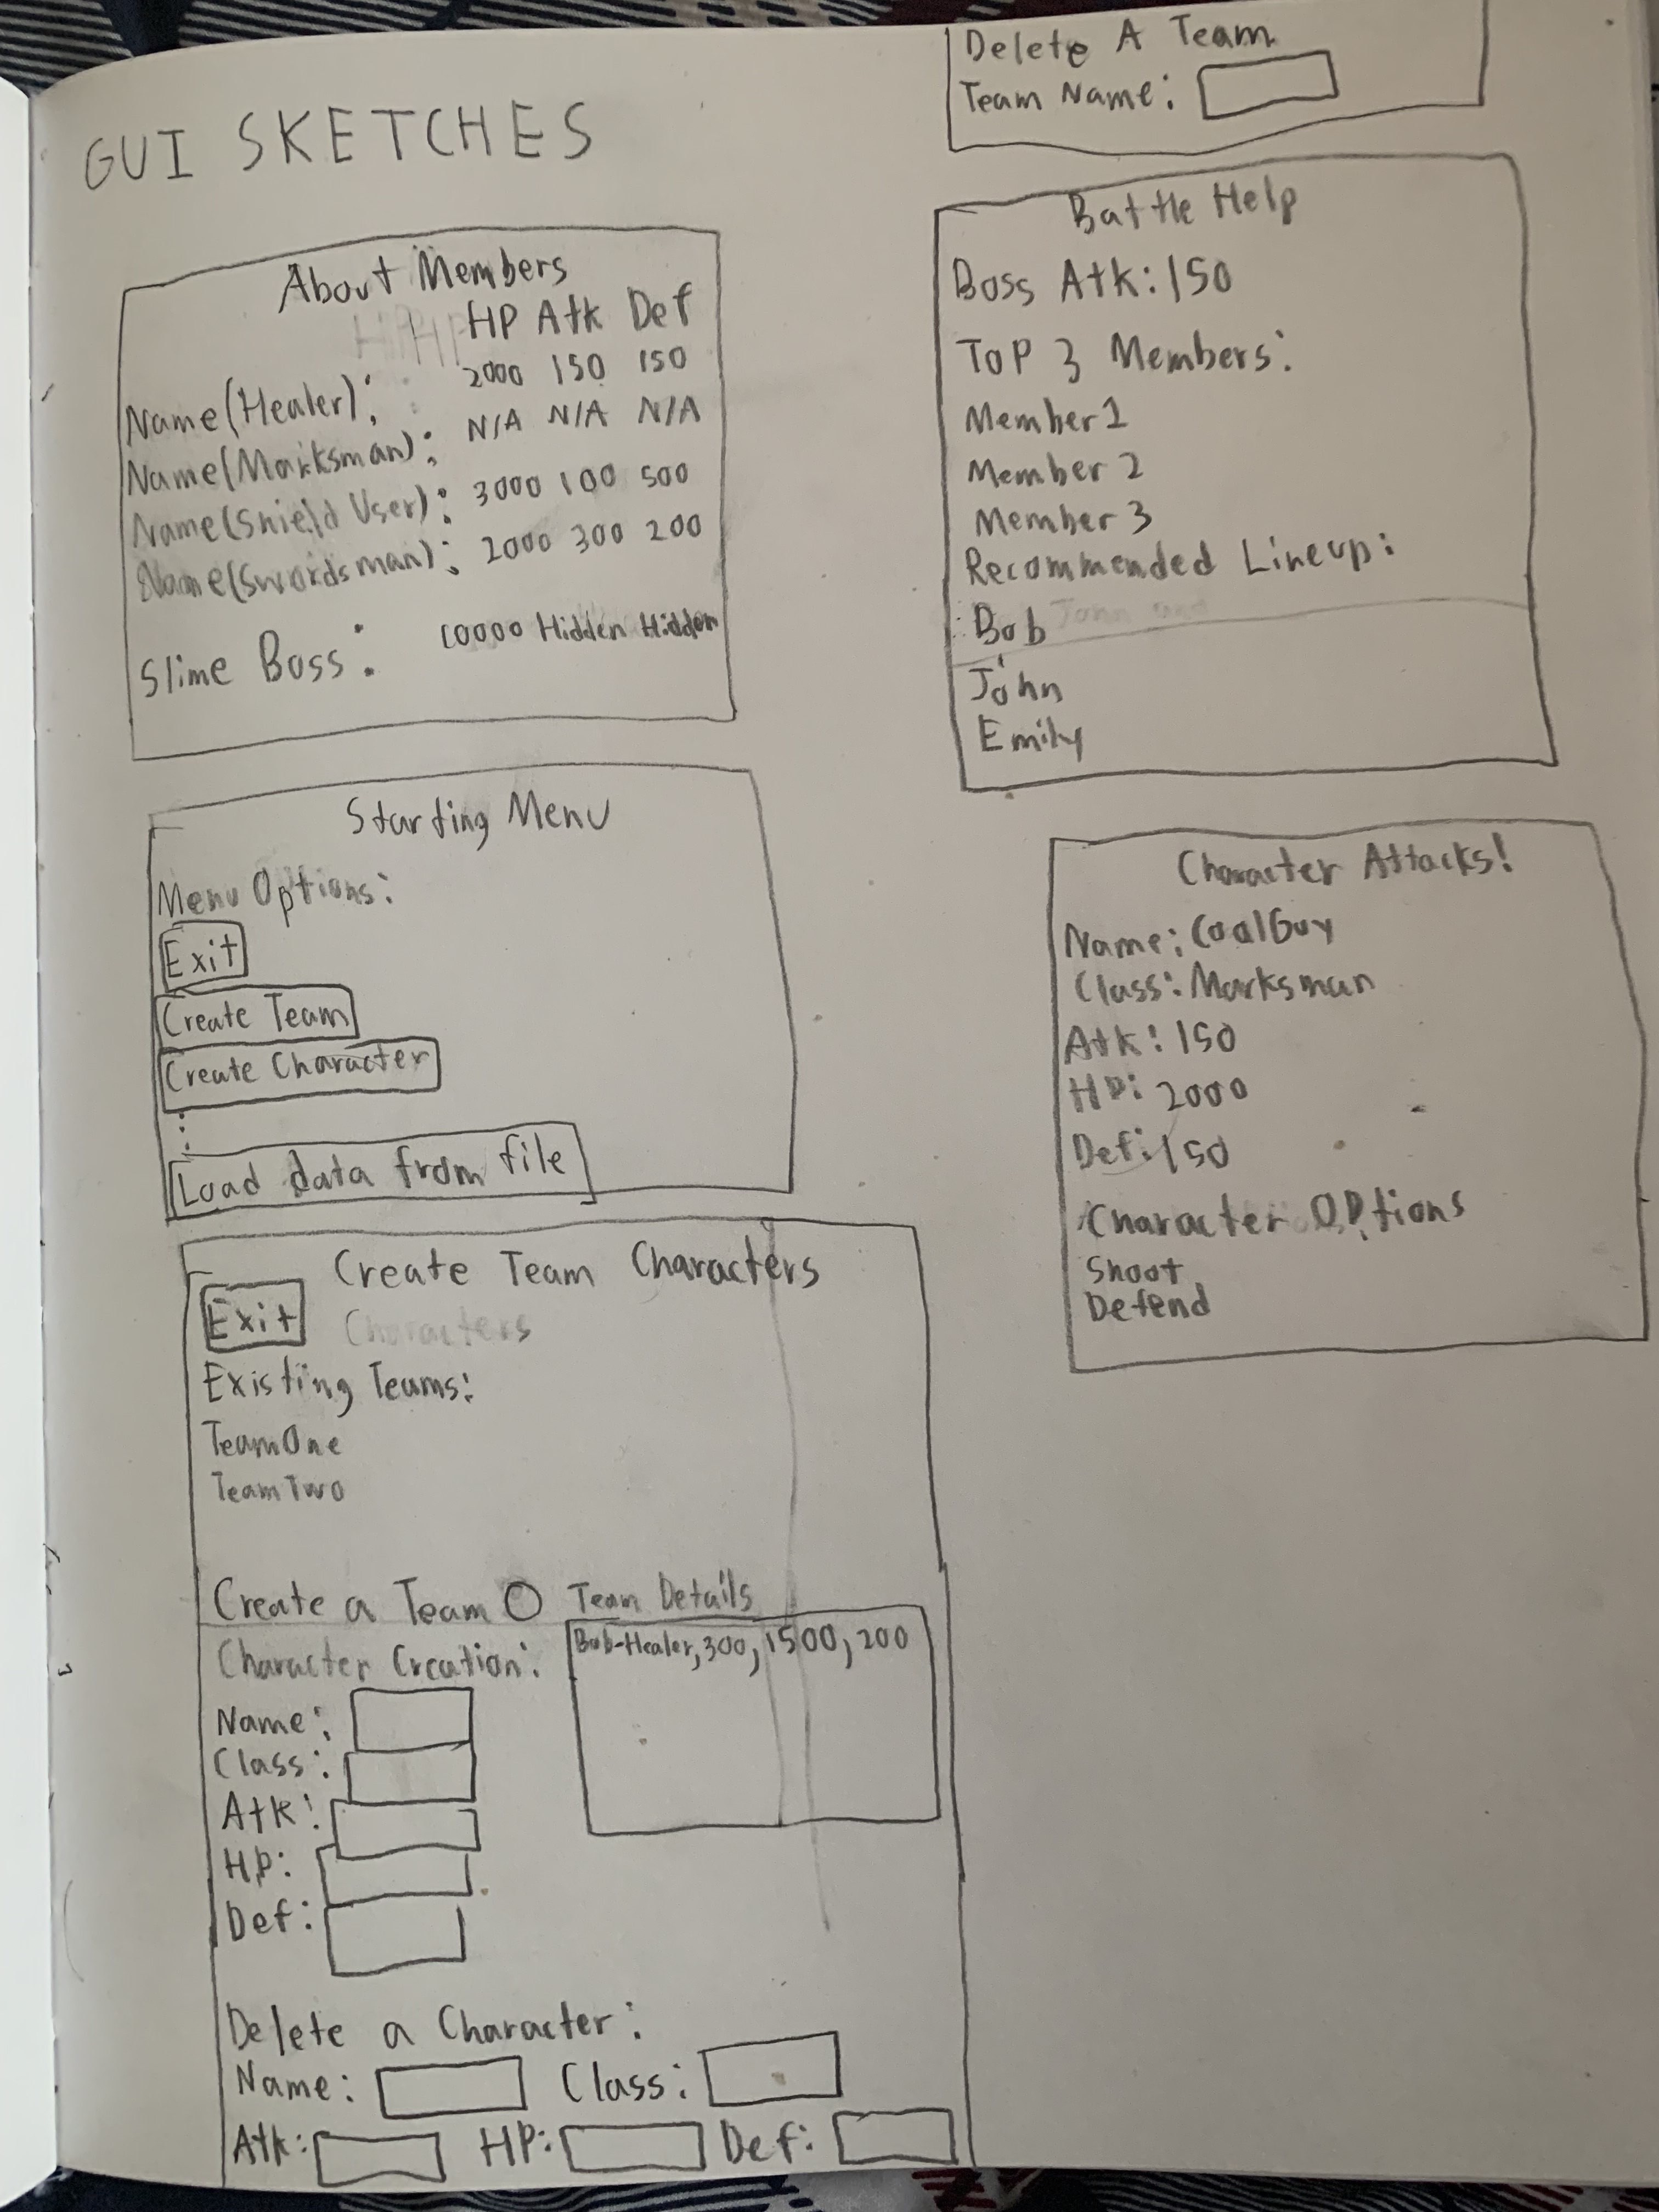 GUI SKETCHES
About Members
HP Atk Def
Name(Healer): 2000 150 150
Name(Marksman): N/A N/A N/A
Name(Shield User): 3000 100 500
Name(Swordsman): 2000 300 200
Slime Boss: 10000 Hidden Hidden
Starting Menu
Menu Options:
Exit
Create Team
Create Character
⋮
Load data from file
Create Team Characters
Exit Characters
Existing Teams:
TeamOne
TeamTwo
Create a Team O Team Details
Character Creation: Bob-Healer, 300, 1500, 200
Name:
Class:
Atk:
HP:
Def:
Delete a Character:
Name: Class:
Atk: HP: Def:
Delete A Team
Team Name:
Battle Help
Boss Atk: 150
Top 3 Members:
Member 1
Member 2
Member 3
Recommended Lineup:
Bob John and
John
Emily
Character Attacks!
Name: CoolGuy
Class: Marksman
Atk: 150
HP: 2000
Def: 150
Character Options
Shoot
Defend